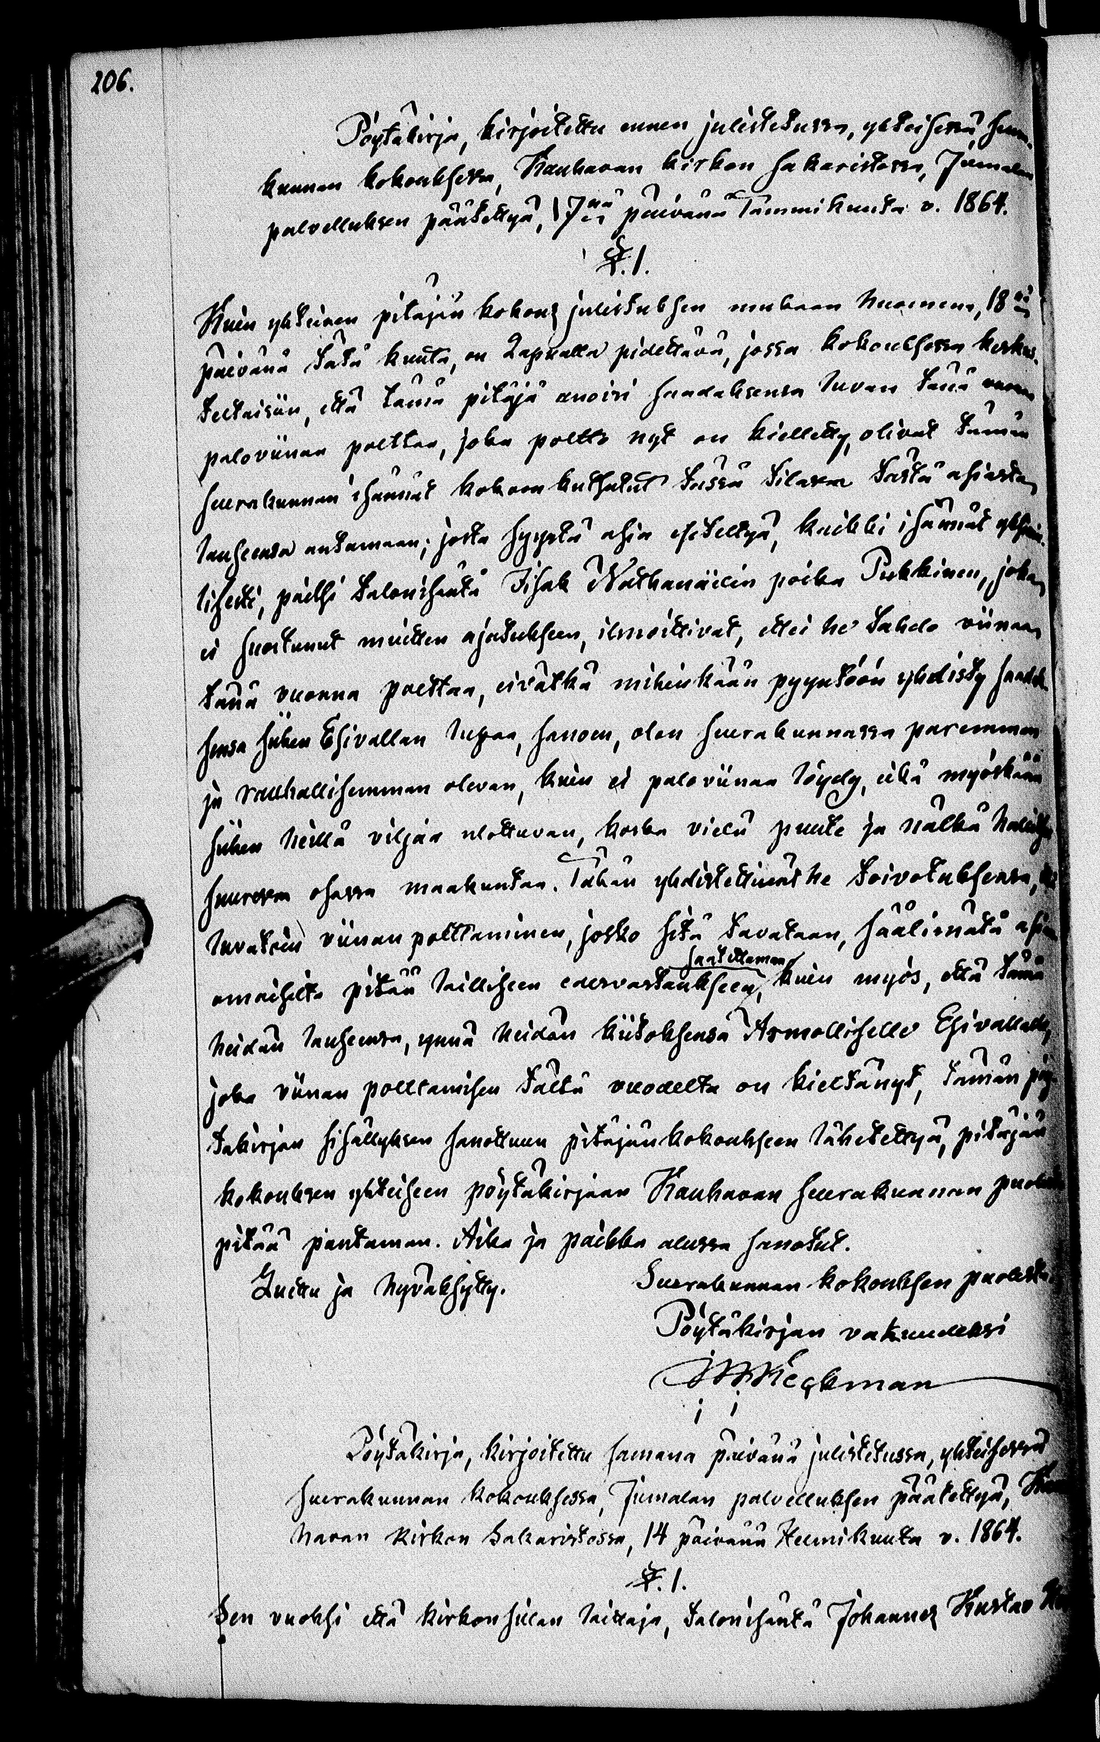 206.
Pöytäkirja, kirjoitettu ennen julistetussa, yhteisessä seura-
kunnan kokouksessa, Kauhavan kirkon sakaristossa, Jumalan
palvelluksen päätettyä, 17nä päivänä Tammikuuta v. 1864.
§. 1.
Kuin yhteinen pitäjän kokous julistuksen mukaan huomenna, 18nä
päivänä tätä kuuta, on Lapualla pidettävä, jossa kokouksessa keskus-
teltaisiin, että tämä pitäjä anoisi saadaksensa luvan tänä vuonna
paloviinaa polttaa, joka poltto nyt on kielletty, olivat tämän
seurakunnan isännät kokoon kutsutut tässä tilassa tästä asiasta
lauseensa antamaan; josta syystä asia esiteltyä, kaikki isännät yksimie-
lisesti, paitsi talonisäntä Iisak Nathanäilin poika Pukkinen, joka
ei suostunut muitten ajatukseen, ilmoittivat, ettei he tahdo viinaa
tänä vuonna polttaa, eivätkä mihinkään pyyntöön yhdisty saadak-
sensa siihen Esivallan lupaa, sanoen, olon seurakunnassa paremman
ja rauhallisemman olevan, kuin ei paloviinaa löydy, eikä myöskään
siihen heillä viljaa ulottuvan, koska vielä puute ja nälkä hallitsee
suuressa osassa maakuntaa. Tähän yhdistettivät he toivotuksensa, että
luvatoin viinan polttaminen, josko sitä tavataan, säälimätä asian
omaisilta pitää lailliseen edesvastaukseen saatettaman, kuin myös, että tämä
heidän lauseensa, ynnä heidän kiitoksensa Armolliselle Esivallalle,
joka viinan polttamisen tältä vuodelta on kieltänyt, tämän pöy-
täkirjan sisällyksen sanottuun pitäjänkokoukseen lähetettyä, pitäjän
kokouksen yhteiseen pöytäkirjaan Kauhavan seurakunnan puolesta
pitää pantaman. Aika ja paikka alussa sanotut.
Luettu ja hyväksytty. Seurakunnan kokouksen puolesta
Pöytäkirjan vakuudeksi
Keckman
Pöytäkirja, kirjoitettu samana päivänä julistetussa, yhteisessä
seurakunnan kokouksessa, Jumalan palvelluksen päätettyä, Kau-
havan kirkon Sakaristossa, 14 päivänä Helmikuuta v. 1864.
§. 1.
Sen vuoksi että kirkonsillan laittaja, talonisäntä Johannes Kustav